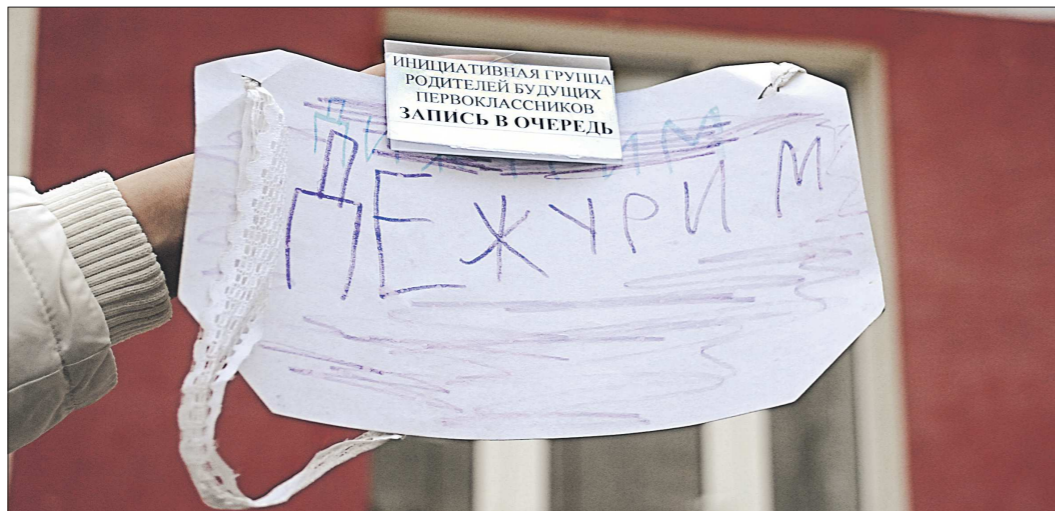 ИНИЦИАТИВНАЯ ГРУППА
РОДИТЕЛЕЙ БУДУЩИХ
ПЕРВОКЛАССНИКОВ
ЗАПИСЬ В ОЧЕРЕДЬ
ДЕЖУРИМ